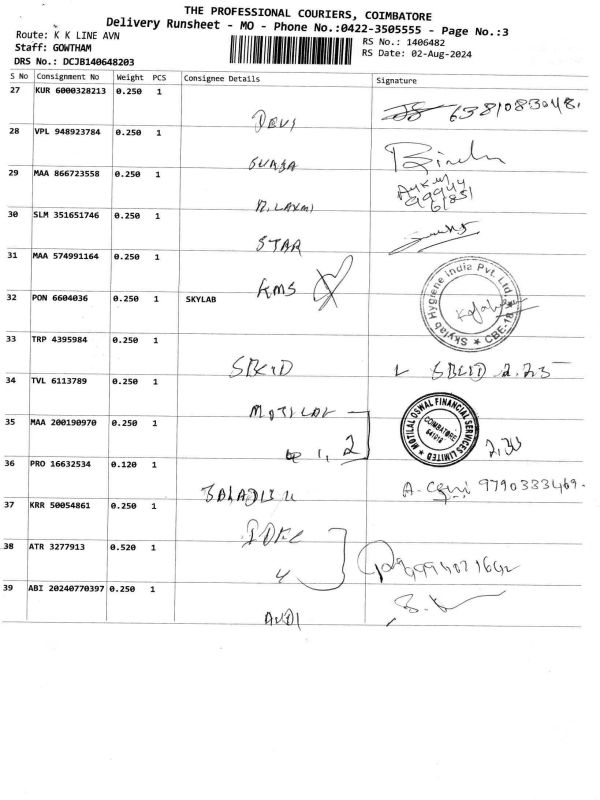 THE PROFESSIONAL COURIERS, COIMBATORE
Delivery Runsheet - MO - Phone No.:0422-3505555 - Page No.:3
Route: K K LINE AVN
Staff: GOWTHAM
DRS No.: DCJB140648203
RS No.: 1406482
RS Date: 02-Aug-2024
S No Consignment No Weight PCS Consignee Details Signature
27 KUR 6000328213 0.250 1 Devi 6381083048.
28 VPL 948923784 0.250 1
29 MAA 866723558 0.250 1 99944 61851
30 SLM 351651746 0.250 1 STAR
31 MAA 574991164 0.250 1 KMS
32 PON 6604036 0.250 1 SKYLAB Skylab Hygiene India Pvt. Ltd. ★ CBE-18 ★
33 TRP 4395984 0.250 1
34 TVL 6113789 0.250 1 MOTILAL
35 MAA 200190970 0.250 1 1, 2 MOTILAL OSWAL FINANCIAL SERVICES LIMITED COIMBATORE 641018
36 PRO 16632534 0.120 1 9790333469.
37 KRR 50054861 0.250 1
38 ATR 3277913 0.520 1 4
39 ABI 20240770397 0.250 1 AUDI